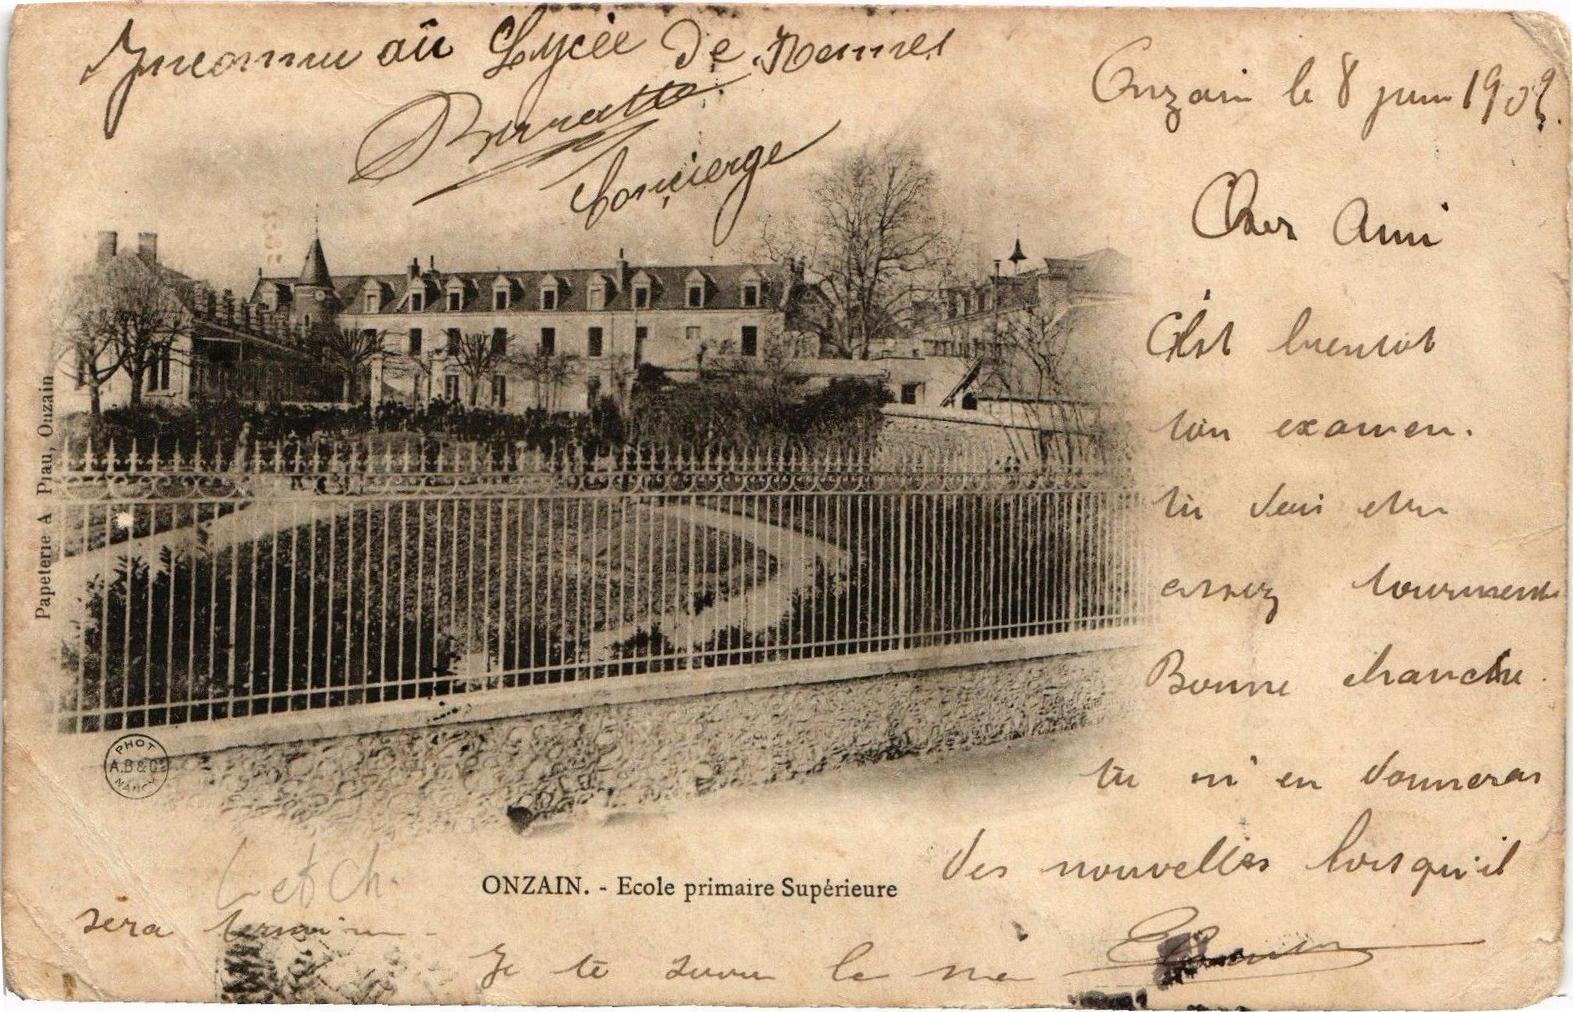 Inconnu au Lycée de Rennes
Concierge
Onzain le 8 juin 190
Cher Ami
C'est bientot
ton examen.
tu dois etre
assez tourmenté
Bonne chanche.
tu m'en donneras
des nouvelles lorsqu'il
sera terminé.
Je te serre la main
Papeterie A Piau, Onzain
PHOT
A.B & Cie
NANCY
L et Ch.
ONZAIN. - Ecole primaire Supérieure